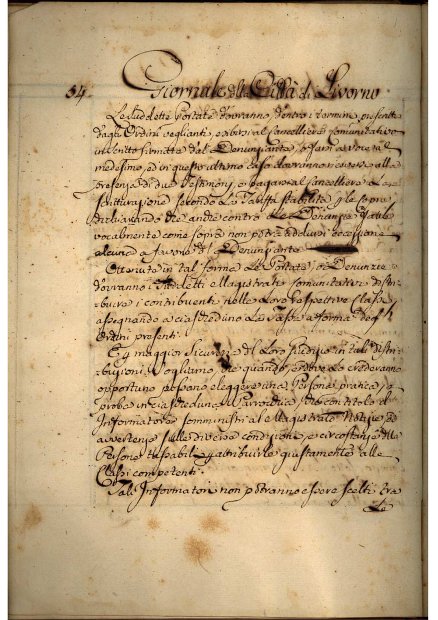 54.
Giornale della Città di Livorno
Le suddette Portate dovranno, dentro i termini prescritti
dagli Ordini veglianti, esibirsi al Cancelliere Comunitativo
in scritto firmate dal Denunziante, o farsi a voce al
medesimo, ed in questo ultimo caso dovranno ricevere alla
presenza di due Testimonj, e pagarsi al Cancelliere la
scritturazione secondo la Tariffa stabilita, e la Copia
dichiarando che anche contro le Denunzie fatte
vocalmente come sopra non potrà dedursi eccezione
alcuna a favore del Denunziante
Ottenute in tal forma le Portate, o Denunzie
dovranno i suddetti Magistrati Comunitativi distri-
buire i contribuenti nelle loro respettive Classi,
assegnando a ciascheduno la Tassa a forma degli
Ordini presenti.
E p maggior sicurezza del loro giudizio in tali distri-
buzioni, Vogliamo, che quando, e dove lo crederanno
opportuno possano eleggere una Persona pratica, e
proba in ciascheduna Parrocchia, che con titolo di
Informatore somministri al Magistrato Notizie ed
avvertenze sulle diverse condizioni, e circostanze delle
Persone tassabili p attribuirle giustamente alle
Classi competenti.
Tali Informatori non potranno essere scelti tra
le